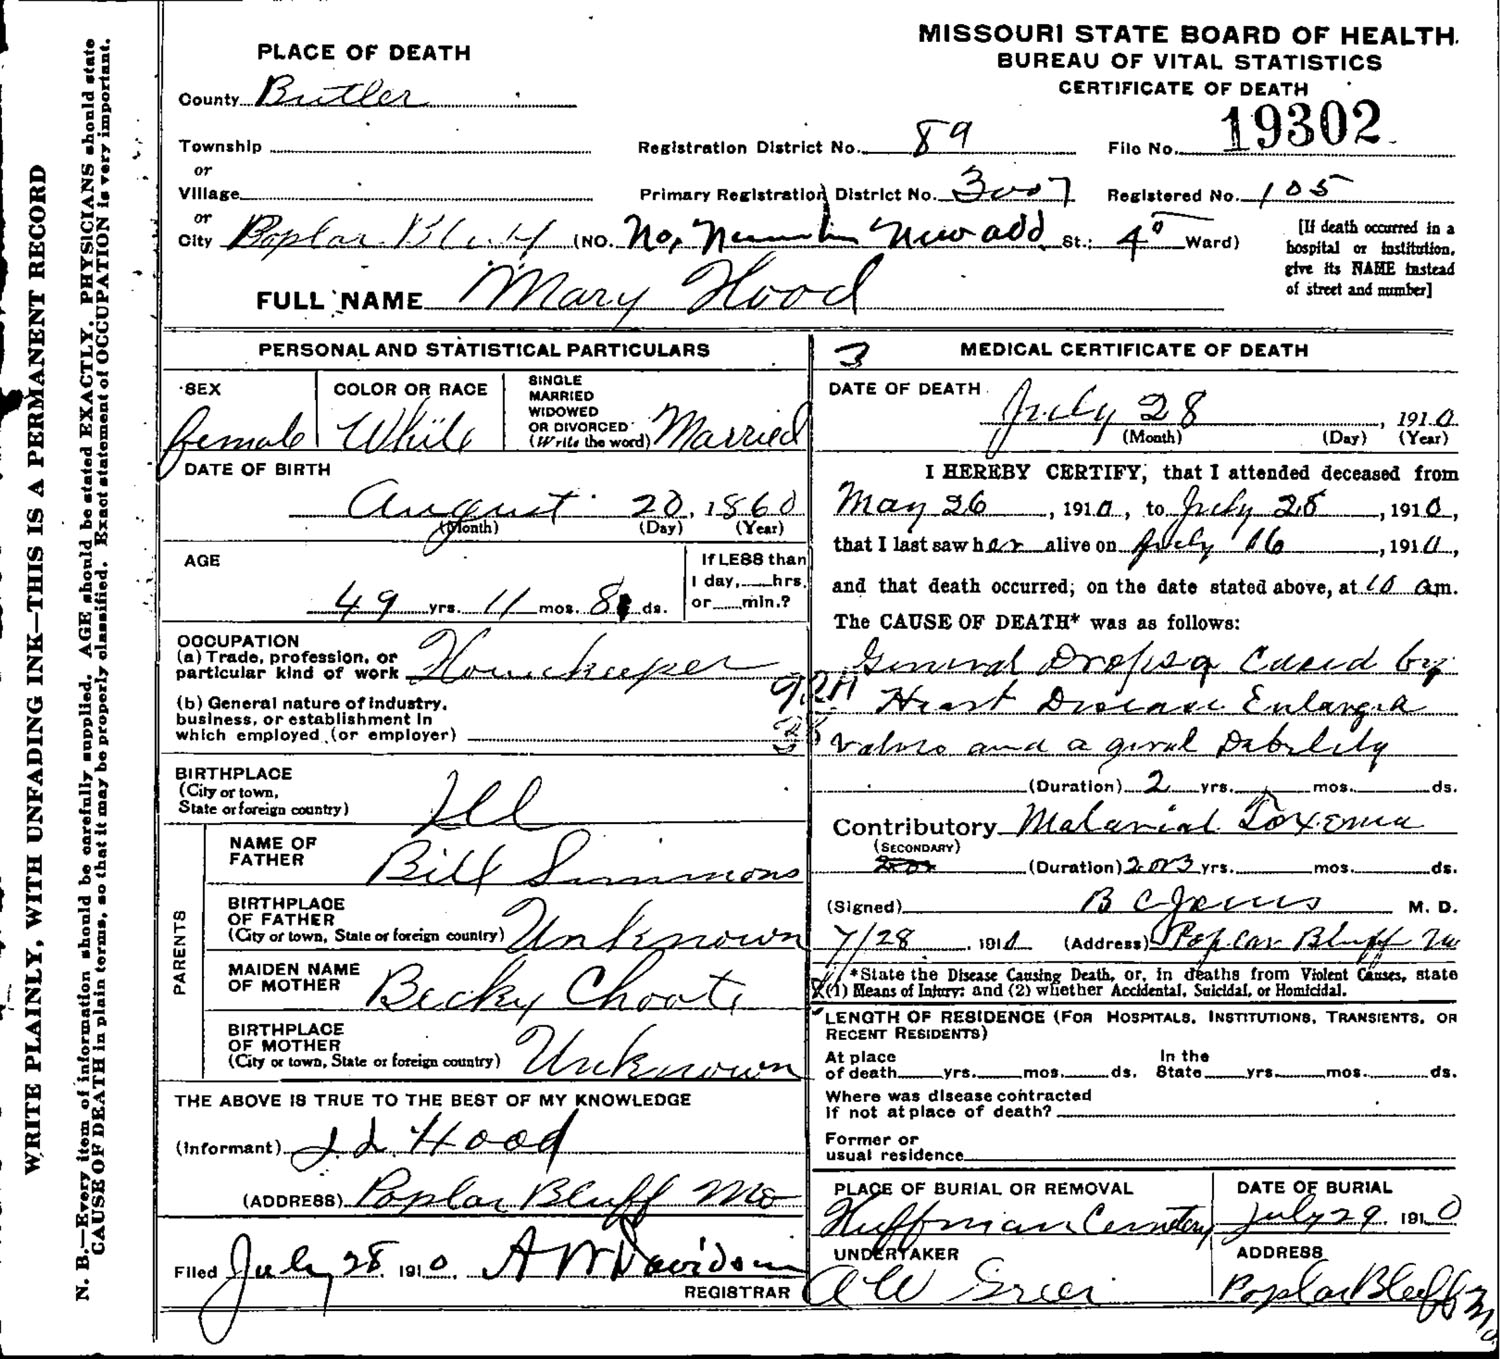 MISSOURI STATE BOARD OF HEALTH.
BUREAU OF VITAL STATISTICS
CERTIFICATE OF DEATH
PLACE OF DEATH
County Butler
Township
or
Village
or
City Poplar Bluff (NO. No, Number New add St.; 4 Ward)
Registration District No. 89
File No. 19302
Primary Registration District No. 3007
Registered No. 105
[If death occurred in a
hospital or institution,
give its NAME instead
of street and number]
FULL NAME Mary Hood
PERSONAL AND STATISTICAL PARTICULARS
SEX
female
COLOR OR RACE
White
SINGLE
MARRIED
WIDOWED
OR DIVORCED
(Write the word) Married
DATE OF BIRTH
August 20, 1860
(Month) (Day) (Year)
AGE
49 yrs. 11 mos. 8 ds.
If LESS than
1 day, hrs.
or min.?
OCCUPATION
(a) Trade, profession, or
particular kind of work Housekeeper
(b) General nature of industry,
business, or establishment in
which employed (or employer)
BIRTHPLACE
(City or town,
State or foreign country) Ill
PARENTS
NAME OF
FATHER Bill Simmons
BIRTHPLACE
OF FATHER
(City or town, State or foreign country) Unknown
MAIDEN NAME
OF MOTHER Becky Choate
BIRTHPLACE
OF MOTHER
(City or town, State or foreign country) Unknown
THE ABOVE IS TRUE TO THE BEST OF MY KNOWLEDGE
(Informant) J. L. Hood
(ADDRESS) Poplar Bluff Mo
Filed July 28, 1910. A W Davidson
REGISTRAR
3 MEDICAL CERTIFICATE OF DEATH
DATE OF DEATH
July 28, 1910
(Month) (Day) (Year)
I HEREBY CERTIFY, that I attended deceased from
May 26, 1910, to July 28, 1910,
that I last saw her alive on July 16, 1910,
and that death occurred, on the date stated above, at 10 am.
The CAUSE OF DEATH* was as follows:
General Dropsy Caused by
Heart Disease Enlarged
Valves and a general Debility
(Duration) 2 yrs. mos. ds.
Contributory Malarial Toxemia
(SECONDARY)
(Duration) 2 or 3 yrs. mos. ds.
(Signed) B C Jones M. D.
7/28, 1910 (Address) Poplar Bluff Mo
*State the Disease Causing Death, or, in deaths from Violent Causes, state
(1) Means of Injury; and (2) whether Accidental, Suicidal, or Homicidal.
LENGTH OF RESIDENCE (FOR HOSPITALS, INSTITUTIONS, TRANSIENTS, OR
RECENT RESIDENTS)
At place
of death yrs. mos. ds.
In the
State yrs. mos. ds.
Where was disease contracted
if not at place of death?
Former or
usual residence
PLACE OF BURIAL OR REMOVAL
Huffman Cemetery
DATE OF BURIAL
July 29, 1910
UNDERTAKER
A W Greer
ADDRESS
Poplar Bluff Mo.
WRITE PLAINLY, WITH UNFADING INK—THIS IS A PERMANENT RECORD
N. B.—Every item of information should be carefully supplied. AGE should be stated EXACTLY. PHYSICIANS should state
CAUSE OF DEATH in plain terms, so that it may be properly classified. Exact statement of OCCUPATION is very important.